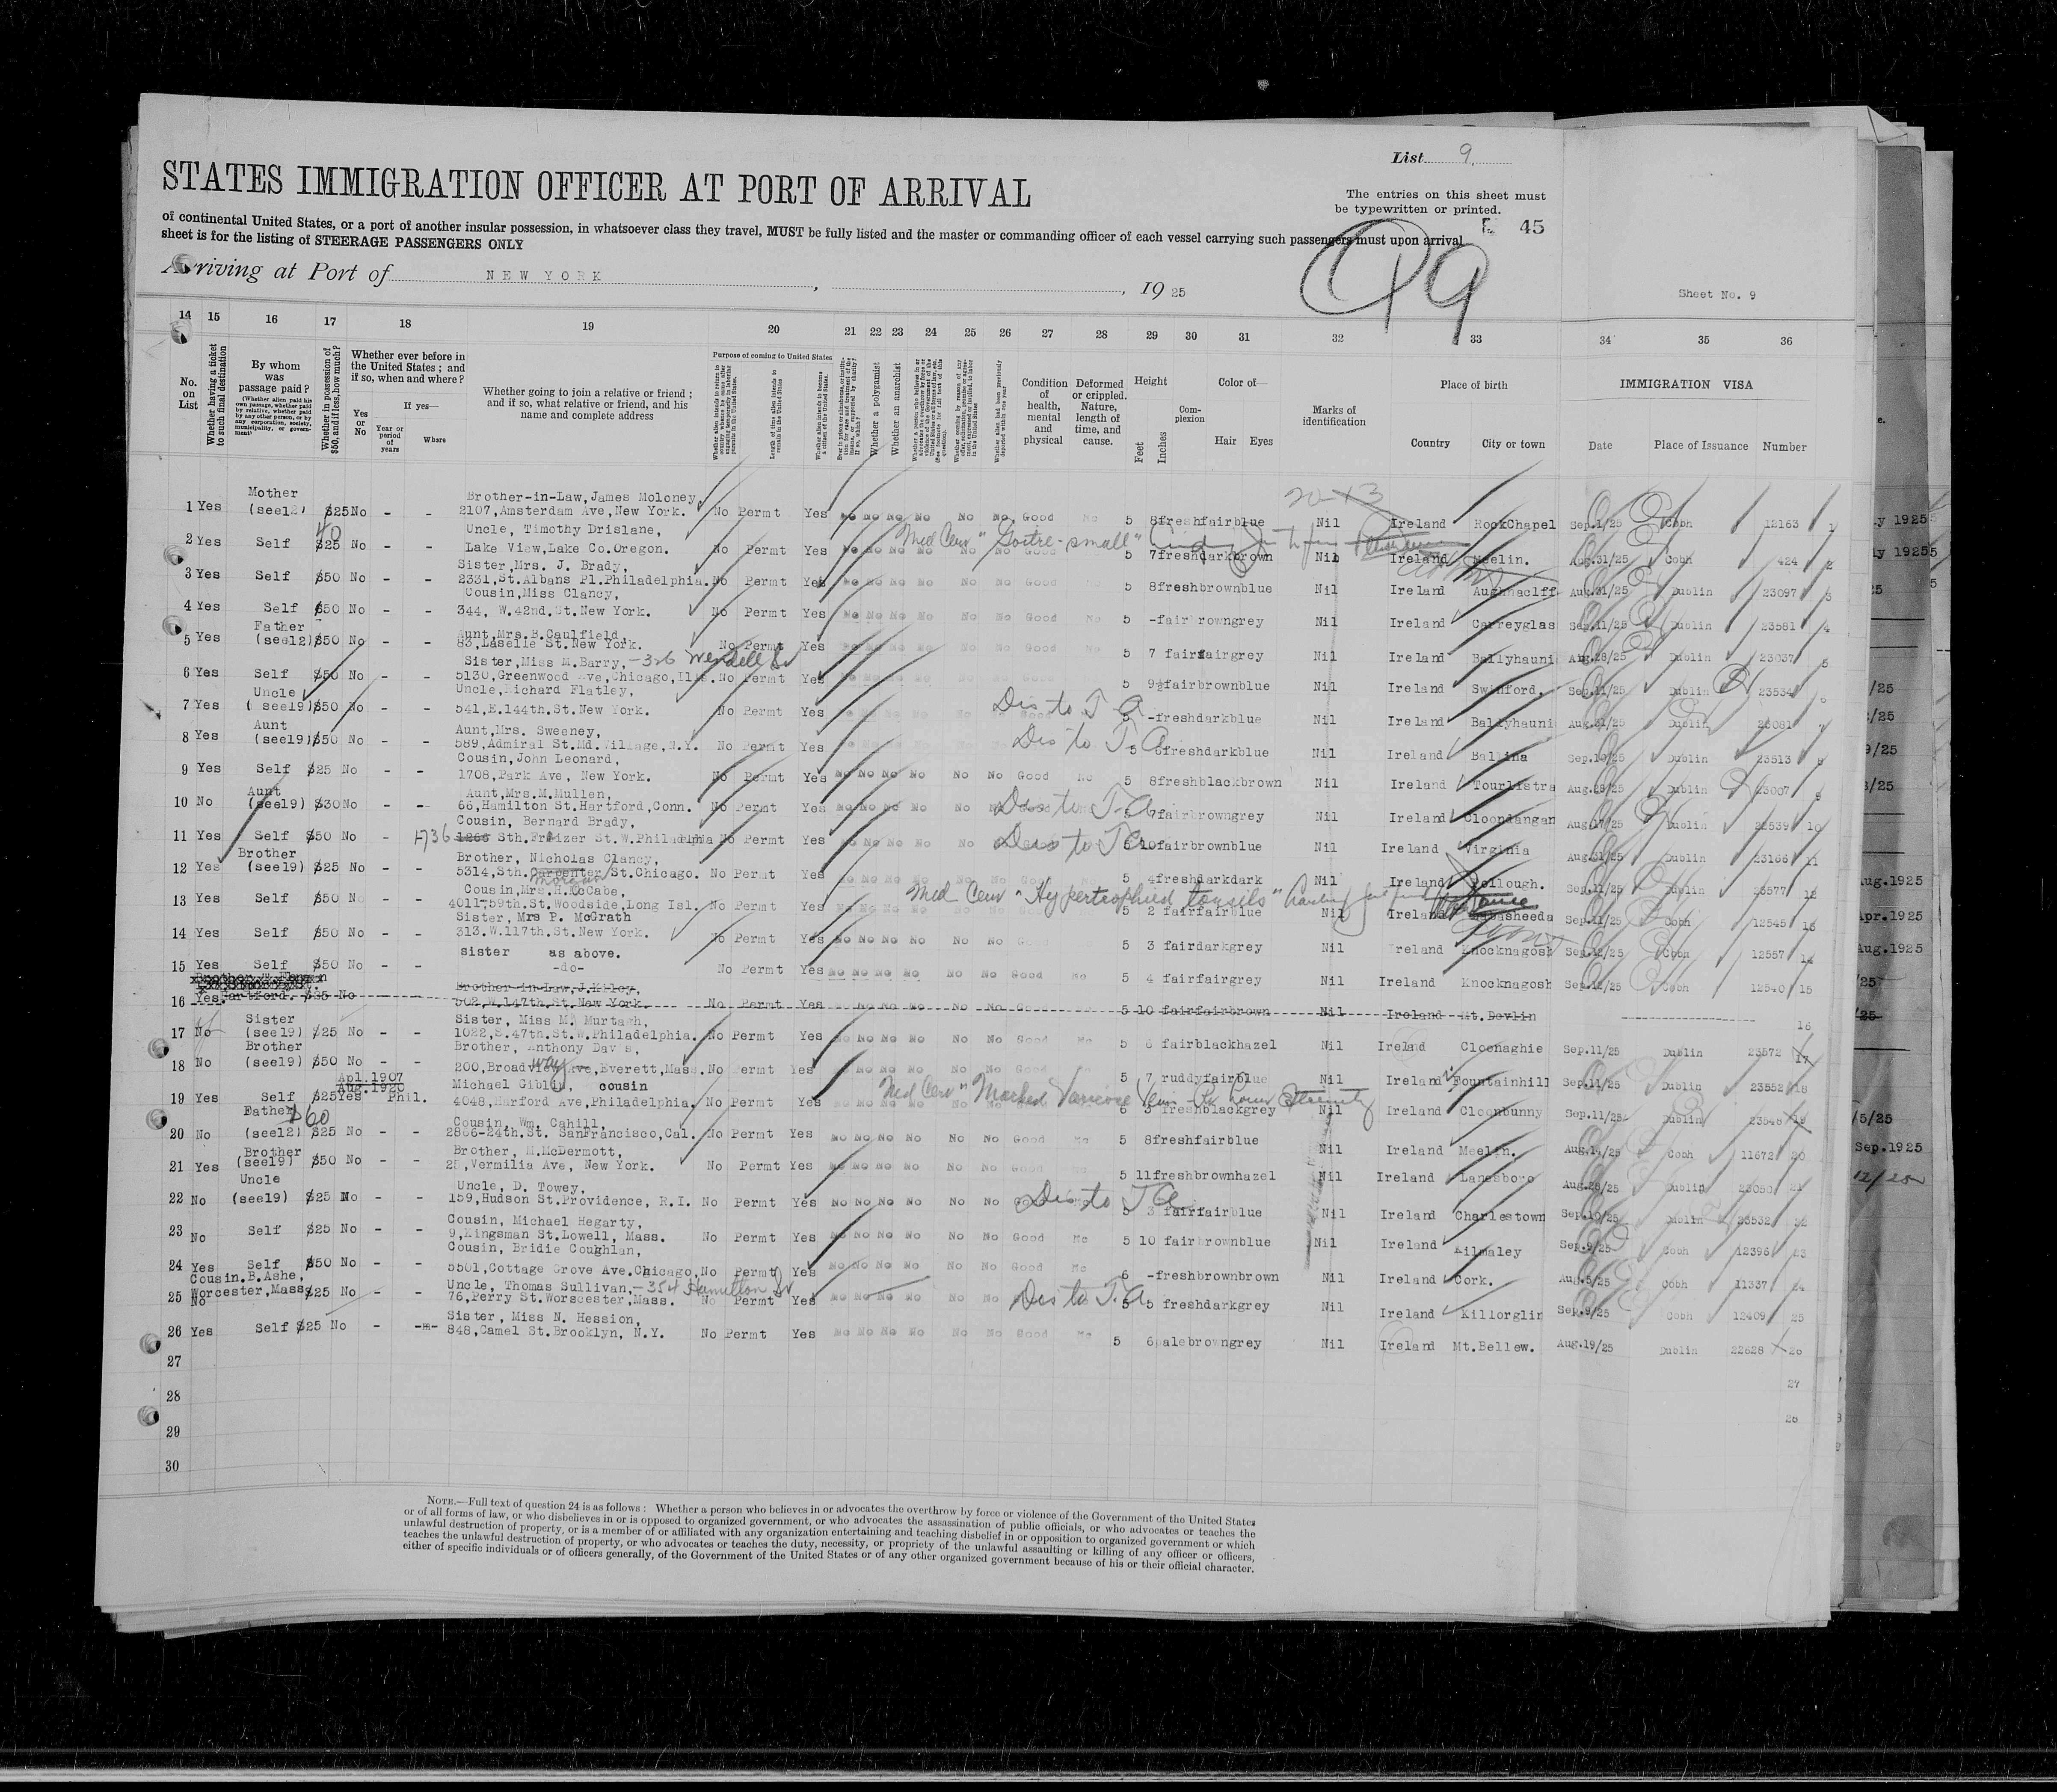 List 9.
STATES IMMIGRATION OFFICER AT PORT OF ARRIVAL
The entries on this sheet must
be typewritten or printed.
45
of continental United States, or a port of another insular possession, in whatsoever class they travel, MUST be fully listed and the master or commanding officer of each vessel carrying such passengers must upon arrival
sheet is for the listing of STEERAGE PASSENGERS ONLY
99
Arriving at Port of NEW YORK , , 19 25
Sheet No. 9
14 15 16 17 18 19 20 21 22 23 24 25 26 27 28 29 30 31 32 33 34 35 36
No. on List
Whether having a ticket to such final destination
By whom was passage paid?
Whether in possession of $50, and if less, how much?
Whether ever before in the United States; and if so, when and where?
Yes or No
If yes—
Year or period of years
Where
Whether going to join a relative or friend; and if so, what relative or friend, and his name and complete address
Purpose of coming to United States
Whether a polygamist
Whether an anarchist
Condition of health, mental and physical
Deformed or crippled. Nature, length of time, and cause.
Height
Feet
Inches
Complexion
Color of—
Hair
Eyes
Marks of identification
Place of birth
Country
City or town
IMMIGRATION VISA
Date
Place of Issuance
Number
1 Yes Mother (see12) $25 No - - Brother-in-Law, James Moloney, 2107, Amsterdam Ave, New York. No Permt Yes No No No No No No Good No 5 8 fresh fair blue Nil Ireland RockChapel Sep.1/25 Cobh 12163 1
2 Yes Self $25 40 No - - Uncle, Timothy Drislane, Lake View, Lake Co. Oregon. No Permt Yes Med Cert "Goitre-small" 5 7 fresh dark brown Nil Ireland Meelin. Aug.31/25 Cobh 424 2
3 Yes Self $50 No - - Sister, Mrs. J. Brady, 2331, St. Albans Pl. Philadelphia. No Permt Yes No No No No No No Good 5 8 fresh brown blue Nil Ireland Aughnaclff Aug.31/25 Dublin 23097 3
4 Yes Self $50 No - - Cousin, Miss Clancy, 344, W. 42nd. St. New York. No Permt Yes No No No No No No Good No 5 - fair brown grey Nil Ireland Carreyglas Sep.11/25 Dublin 23581 4
5 Yes Father (see12) $50 No - - Aunt, Mrs. B. Caulfield, 83, Laselle St. New York. No Permt Yes No No No No No No Good No 5 7 fair fair grey Nil Ireland Ballyhauni Aug.28/25 Dublin 23037 5
6 Yes Self $50 No - - Sister, Miss M. Barry, - 326 Wendell St 5130, Greenwood Ave, Chicago, Ills. No Permt Yes 5 9½ fair brown blue Nil Ireland Swinford. Sep.11/25 Dublin 23534 6
7 Yes Uncle (see19) $50 No - - Uncle, Richard Flatley, 541, E. 144th. St. New York. No Permt Yes Dis to T.A. 5 - fresh dark blue Nil Ireland Ballyhauni Aug.31/25 Dublin 23081 7
8 Yes Aunt (see19) $50 No - - Aunt, Mrs. Sweeney, 589, Admiral St. Md. Village, N.Y. No Permt Yes Dis to T.A. 5 6 fresh dark blue Nil Ireland Ballina Sep.10/25 Dublin 23513 8
9 Yes Self $25 No - - Cousin, John Leonard, 1708, Park Ave, New York. No Permt Yes No No No No No No Good No 5 8 fresh black brown Nil Ireland Tourlistra Aug.28/25 Dublin 23007 9
10 No Aunt (see19) $30 No - - Aunt, Mrs. M. Mullen, 66, Hamilton St. Hartford, Conn. No Permt Yes Dis to T.A. 5 7 fair brown grey Nil Ireland Cloondangan Aug.17/25 Dublin 22539 10
11 Yes Self $50 No - 4736 Cousin, Bernard Brady, 1266 Sth. Fraizer St. W. Philadelphia No Permt Yes Dis to T.A. 5 10 fair brown blue Nil Ireland Virginia Aug.31/25 Dublin 23166 11
12 Yes Brother (see19) $25 No - - Brother, Nicholas Clancy, 5314, Sth. Carpenter St. Chicago. Morgan No Permt Yes 5 4 fresh dark dark Nil Ireland Follough. Sep.11/25 Dublin 23577 12
13 Yes Self $50 No - - Cousin, Mrs. H. McCabe, 4011, 59th. St. Woodside, Long Isl. No Permt Yes Med Cert "Hypertrophied tonsils" 5 2 fair fair blue Nil Ireland Labasheeda Sep.11/25 Cobh 12545 13
14 Yes Self $50 No - - Sister, Mrs P. McGrath 313. W. 117th. St. New York. No Permt Yes No No No No No No Good 5 3 fair dark grey Nil Ireland Knocknagosh Sep.12/25 Cobh 12557 14
15 Yes Self $50 No - - sister as above. -do- No Permt Yes No No No No No No Good No 5 4 fair fair grey Nil Ireland Knocknagosh Sep.12/25 Cobh 12540 15
16 Yes Hartford. $25 No Brother-in-Law, J. Kiley, 502, W. 147th. St. New York. No Permt Yes No No No No No No Good No 5 10 fair fair brown Nil Ireland Mt. Devlin 16
17 No Sister (see19) $25 No - - Sister, Miss M. Murtagh, 1022, S. 47th. St. W. Philadelphia. No Permt Yes No No No No No No Good No 5 6 fair black hazel Nil Ireland Cloonaghie Sep.11/25 Dublin 23572 17
18 No Brother (see19) $50 No - - Brother, Anthony Davis, 200, Broadview Ave, Everett, Mass. way No Permt Yes No No Good 5 7 ruddy fair blue Nil Ireland Fountainhill Sep.11/25 Dublin 23552 18
19 Yes Self $25 Yes Apl. 1907 Aug. 1920 Phil. Michael Giblin, cousin 4048, Harford Ave, Philadelphia. No Permt Yes Med Cert "Marked Varicose Veins 6 3 fresh black grey Nil Ireland Cloonbunny Sep.11/25 Dublin 23548 19
20 No Father (see12) $60 $25 No - - Cousin, Wm. Cahill, 2866-24th, St. SanFrancisco, Cal. No Permt Yes No No No No No No Good No 5 8 fresh fair blue Ireland Meelin. Aug.14/25 Cobh 11672 20
21 Yes Brother (see19) $50 No - - Brother, M. McDermott, 25, Vermilia Ave, New York. No Permt Yes No No No No No No Good 5 11 fresh brown hazel Nil Ireland Lanesboro Aug.28/25 Dublin 23050 21
22 No Uncle (see19) $25 No - - Uncle, D. Towey, 159, Hudson St. Providence, R.I. No Permt Yes No No No No No No Dis to T.A. 5 3 fair fair blue Nil Ireland Charlestown Sep.10/25 Dublin 23532 22
23 No Self $25 No - - Cousin, Michael Hegarty, 9, Kingsman St. Lowell, Mass. No Permt Yes No No No No No No Good No 5 10 fair brown blue Nil Ireland Kilmaley Sep.9/25 Cobh 12396 23
24 Yes Self $50 No - - Cousin, Bridie Coughlan, 5501, Cottage Grove Ave. Chicago, No Permt Yes No No No No No No Good No 6 - fresh brown brown Nil Ireland Cork. Aug.5/25 Cobh 11337 24
25 No Cousin. B. Ashe, Worcester, Mass $25 No - - Uncle, Thomas Sullivan, - 354 Hamilton St 76, Perry St. Worscester, Mass. No Permt Yes Dis to T.A. 5 5 fresh dark grey Nil Ireland Killorglin Sep.9/25 Cobh 12409 25
26 Yes Self $25 No - - Sister, Miss N. Hession, 848, Camel St. Brooklyn, N.Y. No Permt Yes No No No No No No Good No 5 6 pale brown grey Nil Ireland Mt. Bellew. Aug.19/25 Dublin 22628 26
27
28
29
30
NOTE.—Full text of question 24 is as follows: Whether a person who believes in or advocates the overthrow by force or violence of the Government of the United States
or of all forms of law, or who disbelieves in or is opposed to organized government, or who advocates the assassination of public officials, or who advocates or teaches the
unlawful destruction of property, or is a member of or affiliated with any organization entertaining and teaching disbelief in or opposition to organized government or which
teaches the unlawful destruction of property, or who advocates or teaches the duty, necessity, or propriety of the unlawful assaulting or killing of any officer or officers,
either of specific individuals or of officers generally, of the Government of the United States or of any other organized government because of his or their official character.